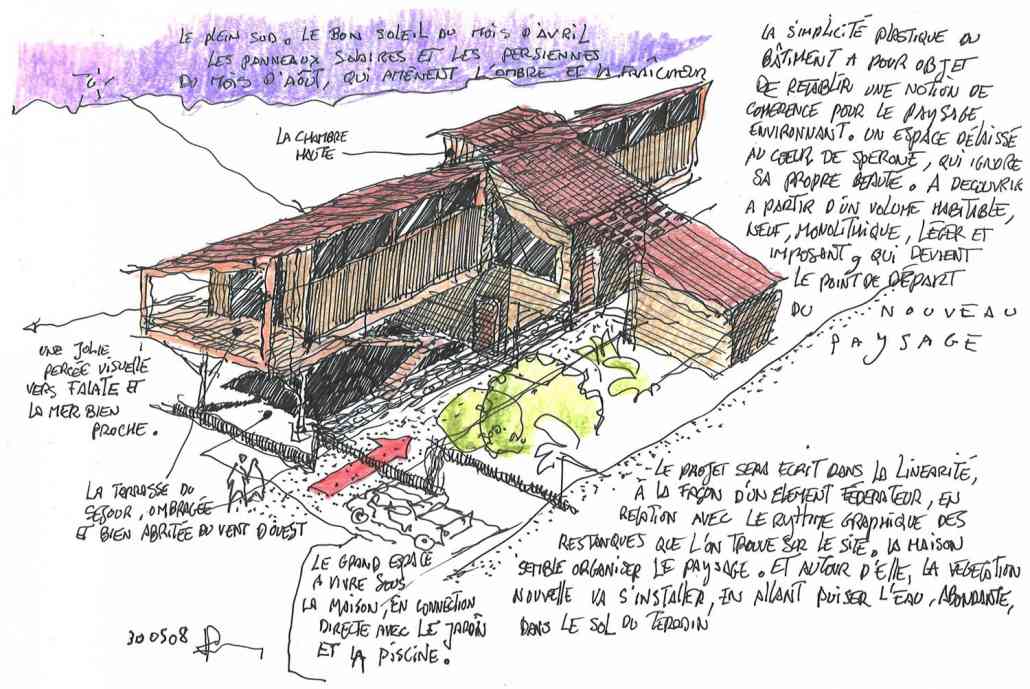 LE PLEIN SUD. LE BON SOLEIL DU MOIS D'AVRIL
LES PANNEAUX SOLAIRES ET LES PERSIENNES
DU MOIS D'AOÛT, QUI AMÈNENT L'OMBRE ET LA FRAÎCHEUR
LA CHAMBRE
HAUTE
LA SIMPLICITÉ PLASTIQUE DU
BÂTIMENT A POUR OBJET
DE RETABLIR UNE NOTION DE
COHERENCE POUR LE PAYSAGE
ENVIRONNANT. UN ESPACE DÉLAISSÉ
AU COEUR DE SPERONE, QUI IGNORE
SA PROPRE BEAUTE. A DECOUVRIR
A PARTIR D'UN VOLUME HABITABLE,
NEUF, MONOLITHIQUE, LÉGER ET
IMPOSANT, QUI DEVIENT
LE POINT DE DÉPART
DU NOUVEAU
PAYSAGE
UNE JOLIE
PERCÉE VISUELLE
VERS FALATE ET
LA MER BIEN
PROCHE.
LA TERRASSE DU
SEJOUR, OMBRAGÉE
ET BIEN ABRITÉE DU VENT D'OUEST
LE GRAND ESPACE
A VIVRE SOUS
LA MAISON, EN CONNECTION
DIRECTE AVEC LE JARDIN
ET LA PISCINE.
LE PROJET SERA ECRIT DANS LA LINEARITÉ,
À LA FAÇON D'UN ELEMENT FÉDERATEUR, EN
RELATION AVEC LE RYTHME GRAPHIQUE DES
RESTANQUES QUE L'ON TROUVE SUR LE SITE. LA MAISON
SEMBLE ORGANISER LE PAYSAGE. ET AUTOUR D'ELLE, LA VEGETATION
NOUVELLE VA S'INSTALLER, EN ALLANT PUISER L'EAU, ABONDANTE,
DANS LE SOL DU TERRAIN
300508